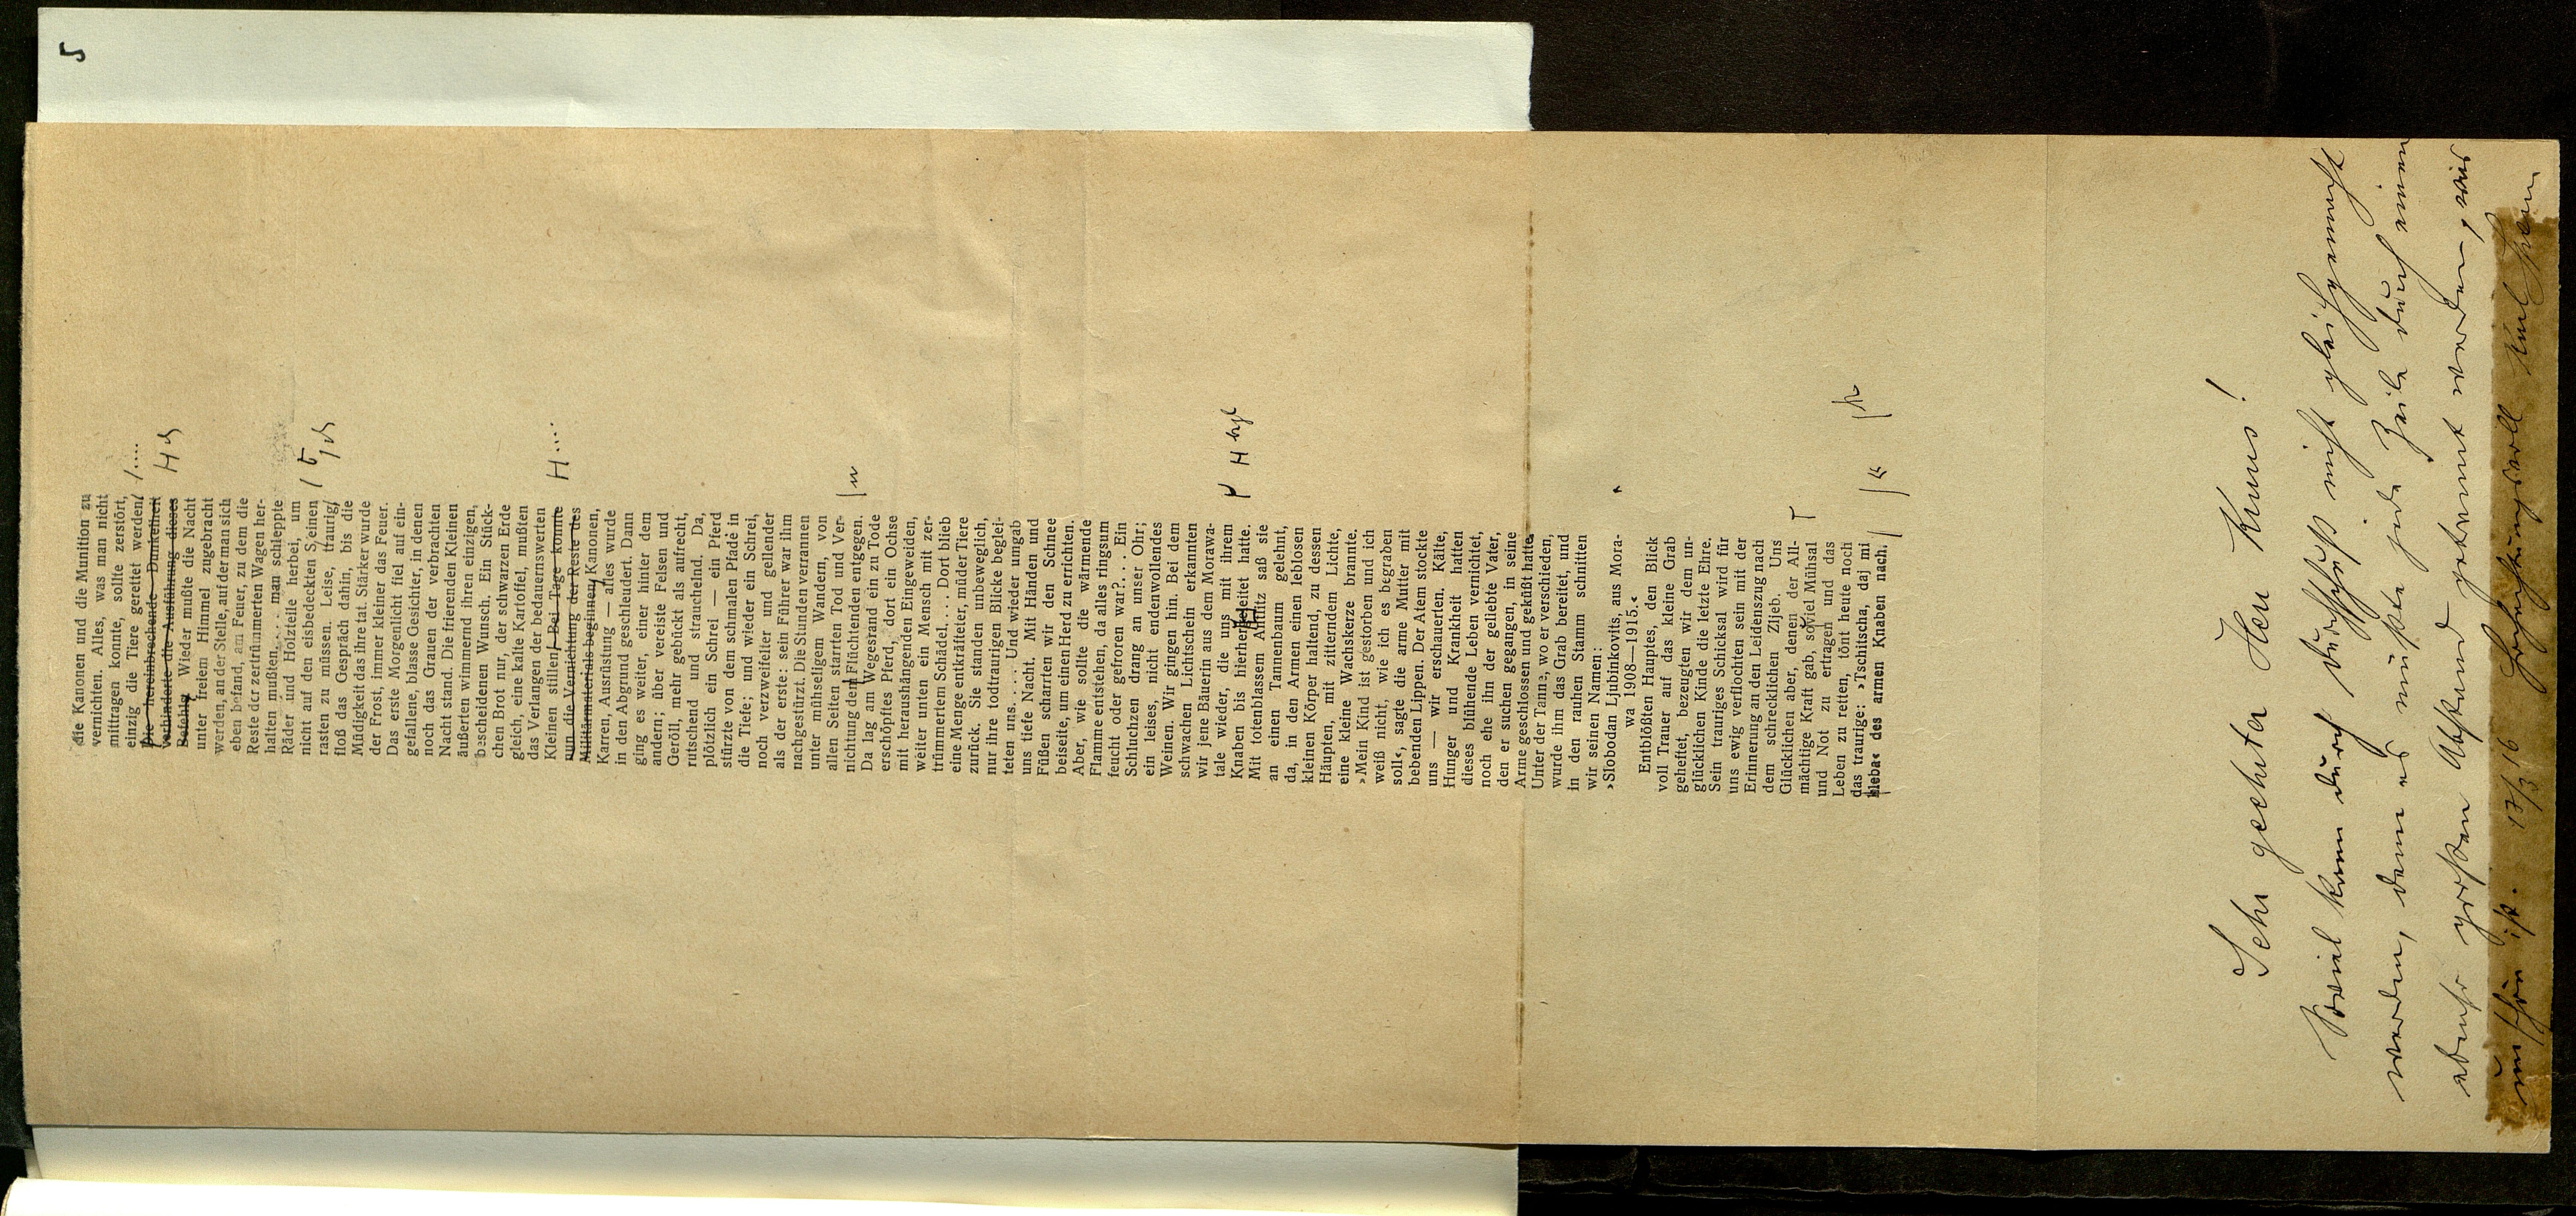 5
die Kanonen und die Munition zu
vernichten. Alles, was man nicht
mittragen konnte, sollte zerstört,
einzig die Tiere gerettet werden.
Die hereinbrechende Dunkelheit
verhinderte die Ausführung dieses
Befehls. Wieder mußte die Nacht
unter freiem Himmel zugebracht
werden, an der Stelle, auf der man sich
eben befand, am Feuer, zu dem die
Reste der zertrümmerten Wagen her-
halten mußten..... man schleppte
Räder und Holzteile herbei, um
nicht auf den eisbedeckten S einen
rasten zu müssen. Leise, traurig
floß das Gespräch dahin, bis die
Müdigkeit das ihre tat. Stärker wurde
der Frost, immer kleiner das Feuer.
Das erste Morgenlicht fiel auf ein-
gefallene, blasse Gesichter, in denen
noch das Grauen der verbrachten
Nacht stand. Die frierenden Kleinen
äußerten wimmernd ihren einzigen,
bescheidenen Wunsch. Ein Stück-
chen Brot nur, der schwarzen Erde
gleich, eine kalte Kartoffel, mußten
das Verlangen der bedauernswerten
Kleinen stillen. Bei Tage konnte
nun die Vernichtung der Reste des
Militärmaterials beginnen. Kanonen,
Karren, Ausrüstung — alles wurde
in den Abgrund geschleudert. Dann
ging es weiter, einer hinter dem
andern; über vereiste Felsen und
Geröll, mehr gebückt als aufrecht,
rutschend und strauchelnd. Da,
plötzlich ein Schrei — ein Pferd
stürzte von dem schmalen Pfade in
die Tiefe; und wieder ein Schrei,
noch verzweifelter und gellender
als der erste: sein Führer war ihm
nachgestürzt. Die Stunden verrannen
unter mühseligem Wandern, von
allen Seiten starrten Tod und Ver-
nichtung dem Flüchtenden entgegen.
Da lag am Wegesrand ein zu Tode
erschöpftes Pferd, dort ein Ochse
mit heraushängenden Eingeweiden,
weiter unten ein Mensch mit zer-
trümmertem Schädel.... Dort blieb
eine Menge entkräfteter, müder Tiere
zurück. Sie standen unbeweglich,
nur ihre todtraurigen Blicke beglei-
teten uns..... Und wieder umgab
uns tiefe Nacht. Mit Händen und
Füßen scharrten wir den Schnee
beiseite, um einen Herd zu errichten.
Aber, wie sollte die wärmende
Flamme entstehen, da alles ringsum
feucht oder gefroren war?.... Ein
Schluchzen drang an unser Ohr;
ein leises, nicht endenwollendes
Weinen. Wir gingen hin. Bei dem
schwachen Lichtschein erkannten
wir jene Bäuerin aus dem Morawa-
tale wieder, die uns mit ihrem
Knaben bis hierher geleitet hatte.
Mit totenblassem Antlitz saß sie
an einen Tannenbaum gelehnt,
da, in den Armen einen leblosen
kleinen Körper haltend, zu dessen
Häupten, mit zitterndem Lichte,
eine kleine Wachskerze brannte.
»Mein Kind ist gestorben und ich
weiß nicht, wie ich es begraben
soll«, sagte die arme Mutter mit
bebenden Lippen. Der Atem stockte
uns — wir erschauerten. Kälte,
Hunger und Krankheit hatten
dieses blühende Leben vernichtet,
noch ehe ihn der geliebte Vater,
den er suchen gegangen, in seine
Arme geschlossen und geküßt hatte.
Unter der Tanne, wo er verschieden,
wurde ihm das Grab bereitet, und
in den rauhen Stamm schnitten
wir seinen Namen:
»Slobodan Ljubinkovits, aus Mora-
wa 1908—1915.«
Entblößten Hauptes, den Blick
voll Trauer auf das kleine Grab
geheftet, bezeugten wir dem un-
glücklichen Kinde die letzte Ehre.
Sein trauriges Schicksal wird für
uns ewig verflochten sein mit der
Erinnerung an den Leidenszug nach
dem schrecklichen Zljeb. Uns
Glücklichen aber, denen der All-
mächtige Kraft gab, soviel Mühsal
und Not zu ertragen und das
Leben zu retten, tönt heute noch
das traurige: »Tschitscha, daj mi
hleba« des armen Knaben nach.
Sehr geehrter Herr Kraus!
Soviel kann durch Durchschuß nicht gleichgemacht
werden, denn es müßte jede Zeile durch einen
ebenso großen Abstand getrennt werden, wie
ist. 17/3 16 Hochachtungsvoll